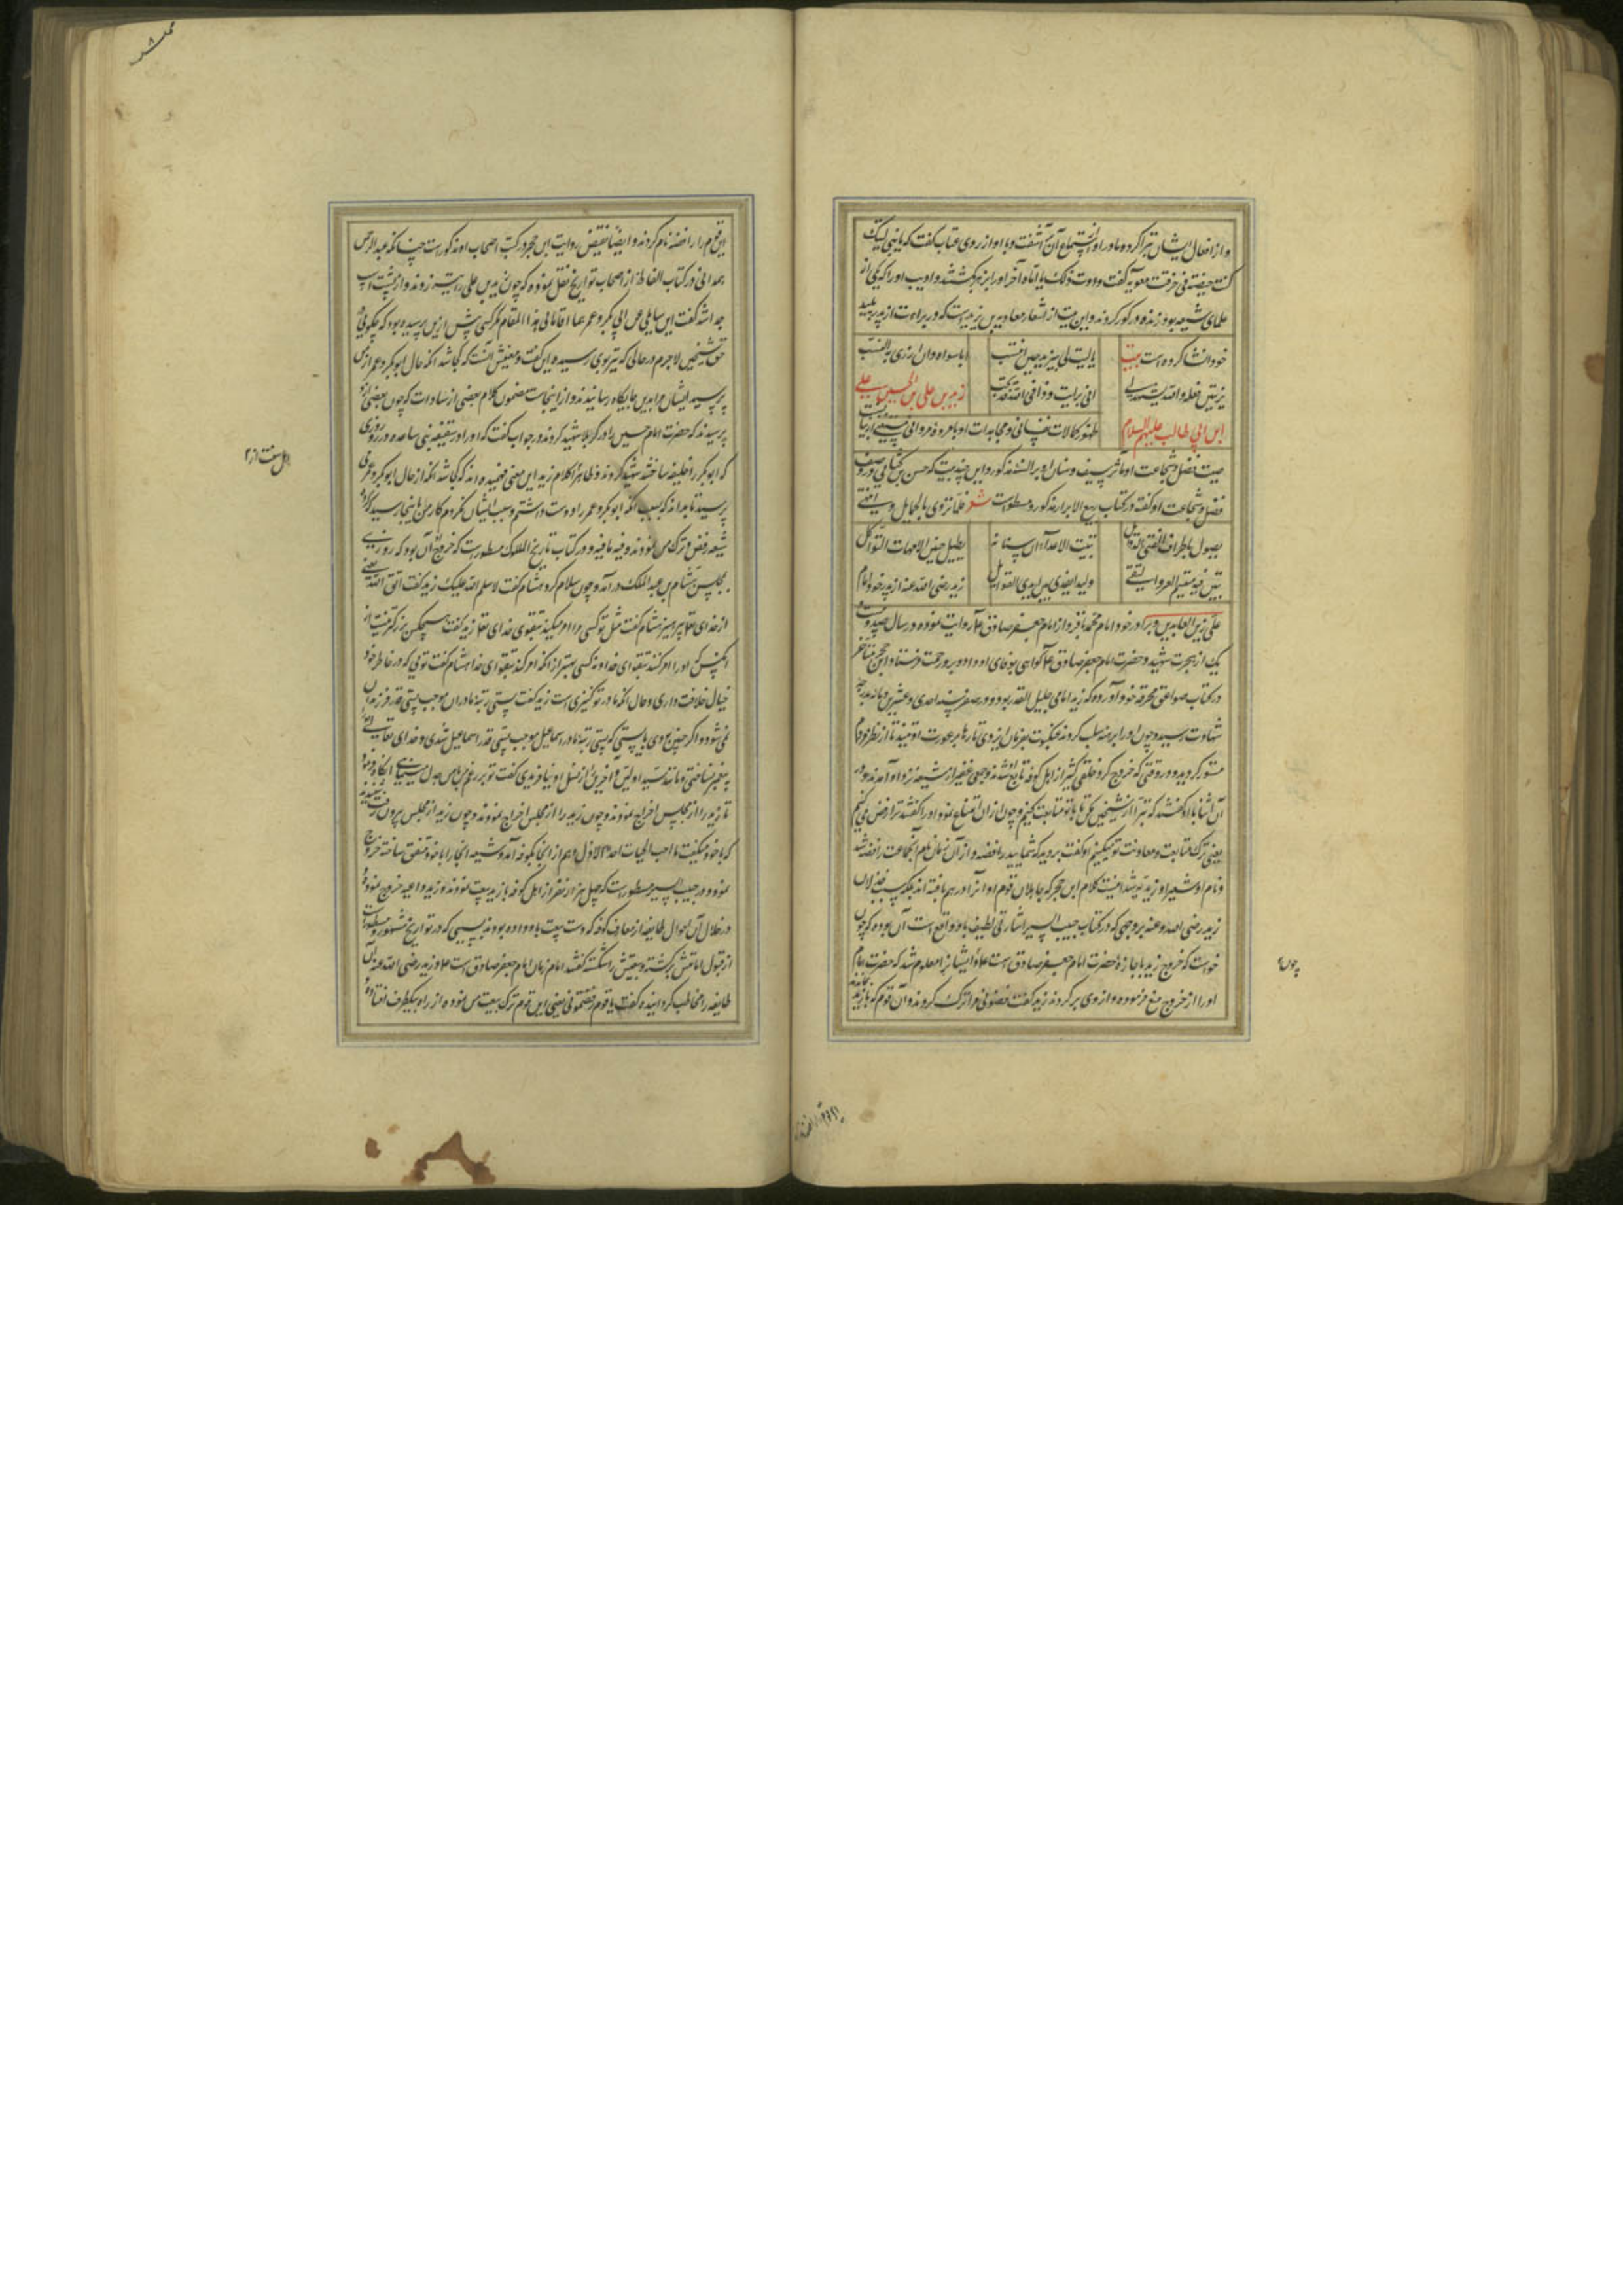 و از افعال ایشان تبرا کرد و مادر او از استماع آن آشفت و با او از روی عتاب گفت که یا بنی لیتک
کنت حیضة فی خرقة معویه گفت وددت ذلک یا اماه آخر اورا بزهر کشتند و ادیب اورا که یکی از
علمای شیعه بود زنده در گور کردند و این بیت از اشعار معاویه بن یزیدست که در براءت از پدر پلید
خود انشا کرده است بیت
یا لیت لی بیزید حین انتسب
ابا سواه وان ازری بی النسب
زید بن علی بن الحسین بن علی
ابن ابی طالب علیهم السلام
ظهور کمالات نفسانی و مجاهدات او با مرده مروانی
صیت فضل و شجاعت او مآثر سیف و سنان او بر السنه مذکور و این چند بیت که حسن کنانی در وصف
فضل و شجاعت او گفته در کتاب ربیع الابرار مذکور و مسطورست شعر فلما تردی بالحمایل و
یصول باطراف القنی الذوابل
تبینت الاعداء ان سنانه
یطیل حنین الامهات الثواکل
تبین فیه میسم العز والتقی
ولیدا یفدی بین ایدی القوابل
زید رضی الله عنه از پدر خود امام
علی زین العابدین و برادر خود امام محمد باقر و از امام جعفر صادق ع روایت نموده و در سال صد و بیست و
یک از هجرت شهید و حضرت امام جعفر صادق ع گواهی بوفای او داده و برو رحمت فرستاد و ابن حجر متأخر
در کتاب صواعق محرقه خود آورده که زید امامی جلیل القدر بود و در صفر سنه احدی و عشرین و مایه بدرجه
شهادت رسید و چون اورا برهنه صلب کردند عنکبوت بفرمان ایزدی تارها بر عورت او تنید تا از نظر مردم
مستور گردید و در وقتی که خروج کرد خلقی کثیر از اهل کوفه تابع او شدند و جمعی غفیر از شیعه نزد او آمدند و در
آن اثنا با او گفتند که تبرا از شیخین بکن تا با تو متابعت کنیم و چون از آن امتناع نمود اورا گفتند ترا رفض می کنیم
یعنی ترک متابعت و معاونت تو میکنیم او گفت بروید که شمایید رافضه و از آن زمان نام آنجماعت رافضه شد
و نام او شیعه او زیدیه شد اینست کلام ابن حجر که جاهلان قوم او آنرا در هم بافته اند بلکه سبب خذلان
زید رضی الله عنه بر وجهی که در کتاب حبیب السیر اشارتی لطیف باو واقع است آن بوده که چون
خواست که خروج زید باجازة حضرت امام جعفر صادق است ع و ایشانرا معلوم شد که حضرت امام
اورا از خروج منع فرموده و از وی بر گردند زید گفت رفضونی مرا ترک کردند و آن قوم که با زید
چون
این قوم را رافضه نام کردند و ایضا نقیض روایت ابن حجر در کتب اصحاب او مذکورست چنانکه عبد الرحمن
همدانی در کتاب الفاظ از اصحاب تواریخ نقل نموده که چون زید بن علی را تیر زدند و از پشت اسب
جدا شد گفت این سایلی عن ابی بکر و عمر هما اقامانی هذا المقام مگر کسی پیش ازین پرسیده بود که چگویی در
حق شیخین لاجرم در حالی که تیر بوی رسیده این گفت و معنیش آنست که کجا شد انکه حال ابوبکر و عمر از من
پرسید ایشان مرا بدین جایگاه رسانیدند و از اینجاست مضمون کلام بعضی از سادات که چون بعضی از و
پرسیدند که حضرت امام حسین را در کربلا شهید کردند در جواب گفت که اورا در سقیفه بنی ساعده در روزی
که ابوبکر را خلیفه ساختند شهید کردند و ظاهرا کلام زید این معنی فهمیده اند که کجا شد انکه از حال ابوبکر و عمر می
پرسید تا بداند که بسبب انکه ابوبکر و عمر را دوست داشتم و سب ایشان نکردم کار من باینجا رسید که
شیعه رفض و ترک من نمودند و فیه ما فیه و در کتاب تاریخ الملوک مسطورست که خروج آن بود که روزی
بمجلس هشام بن عبد الملک در آمد و چون سلام کرد هشام گفت لا سلم الله علیک زید گفت اتق الله یعنی
از خدای تعا بپرهیز هشام گفت مثل تو کسی مرا امر میکند بتقوی خدای تعا زید گفت هیچکس بزرگتر نیست از
انکس که اورا امر کنند بتقوای خدا و نه کسی بهتر از انکه امر کند بتقوای خدا هشام گفت تویی که در خاطر خود
خیال خلافت داری و حال انکه مادر تو کنیزی است زید گفت پستی رتبه مادران موجب پستی قدر فرزندان
نمی شود و اگر چنین بودی بایستی که پستی رتبه مادر اسماعیل موجب پستی قدر اسماعیل شدی و خدای تعا
پیغمبر نساختی و مانند سید اولین و آخرین از نسل او نیافریدی
تا زید را از مجلس اخراج نمودند و چون زید را از مجلس اخراج نمودند و چون زید از مجلس بیرون رفت
که با خود میگفت ما احب الحیات احد الا ذل و هم از انجا بکوفه آمد و شیعه انجا را با خود متفق ساخته خروج
نمود و در حبیب السیر مسطورست که چهل هزار نفر از اهل کوفه با زید بیعت نمودند و زید داعیه خروج نمود و
در خلال آن احوال طایفه از معارف کوفه که دست بیعت باو داده بودند بسببی که در تواریخ مشهور و مسطورست
از قبول امامتش برگشته و بیعتش را شکسته گفتند امام زمان امام جعفر صادق است ع و زید رضی الله عنه آن
طایفه را مخاطب گردانیده گفت یا قوم رفضتمونی یعنی ای قوم ترک بیعت من نموده از راه بیکطرف افتاده